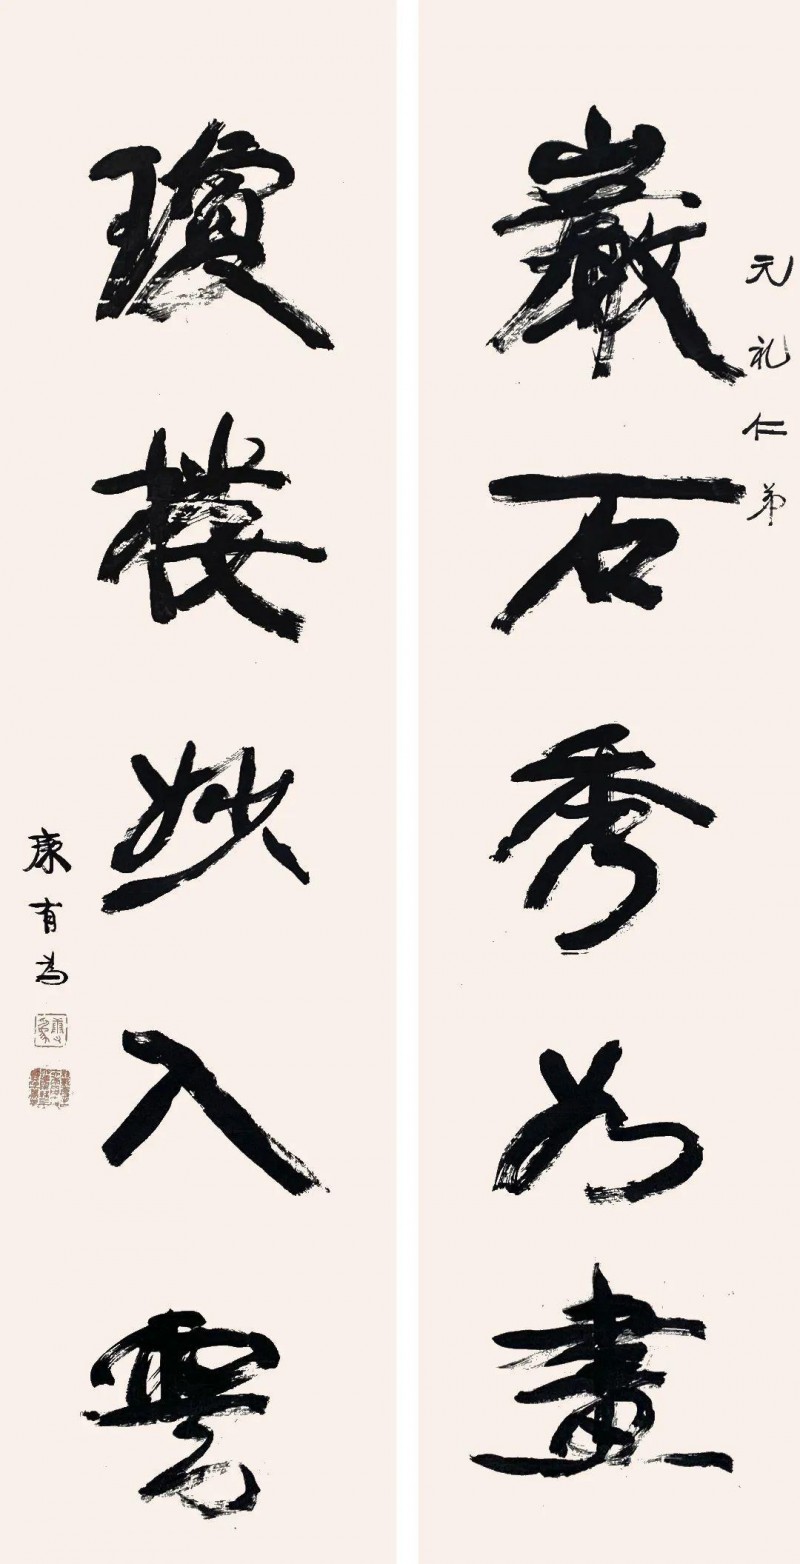 元礼仁弟
巖石秀如畫
瓊樓妙入雲
康有為